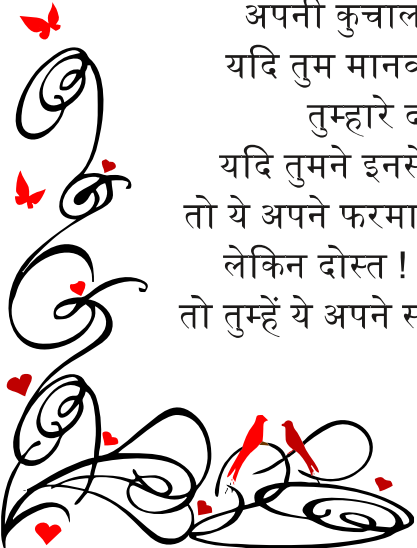 अपनी कुचाल
यदि तुम मानव
तुम्हारे
यदि तुमने इनसे
तो ये अपने फरमा
लेकिन दोस्त !
तो तुम्हें ये अपने